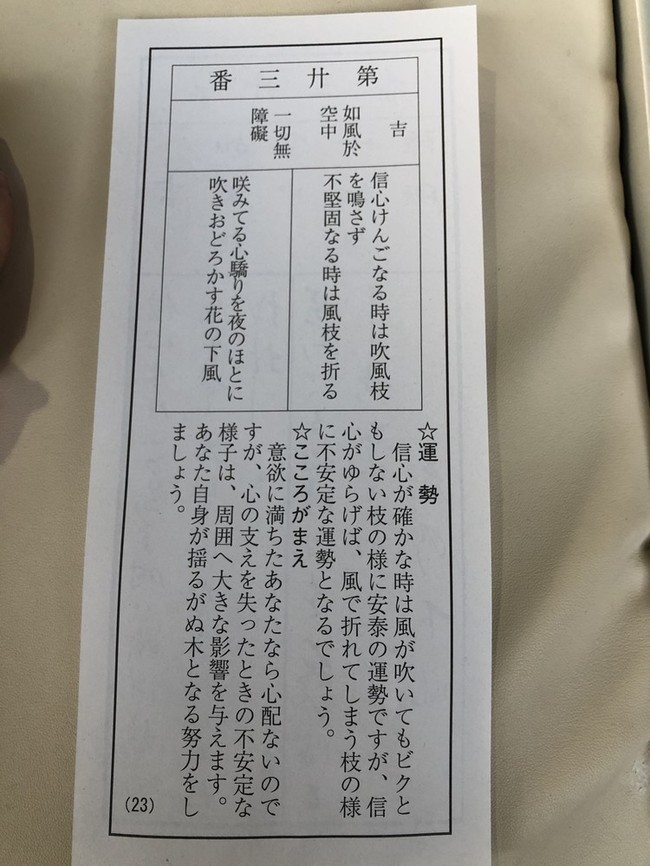 第廿三番
吉
如風於
空中
一切無
障礙
信心けんごなる時は吹風枝
を鳴さず
不堅固なる時は風枝を折る
咲みてる心驕りを夜のほとに
吹きおどろかす花の下風
☆運 勢
信心が確かな時は風が吹いてもビクと
もしない枝の様に安泰の運勢ですが、信
心がゆらげば、風で折れてしまう枝の様
に不安定な運勢となるでしょう。
☆こころがまえ
意欲に満ちたあなたなら心配ないので
すが、心の支えを失ったときの不安定な
様子は、周囲へ大きな影響を与えます。
あなた自身が揺るがぬ木となる努力をし
ましょう。
(23)